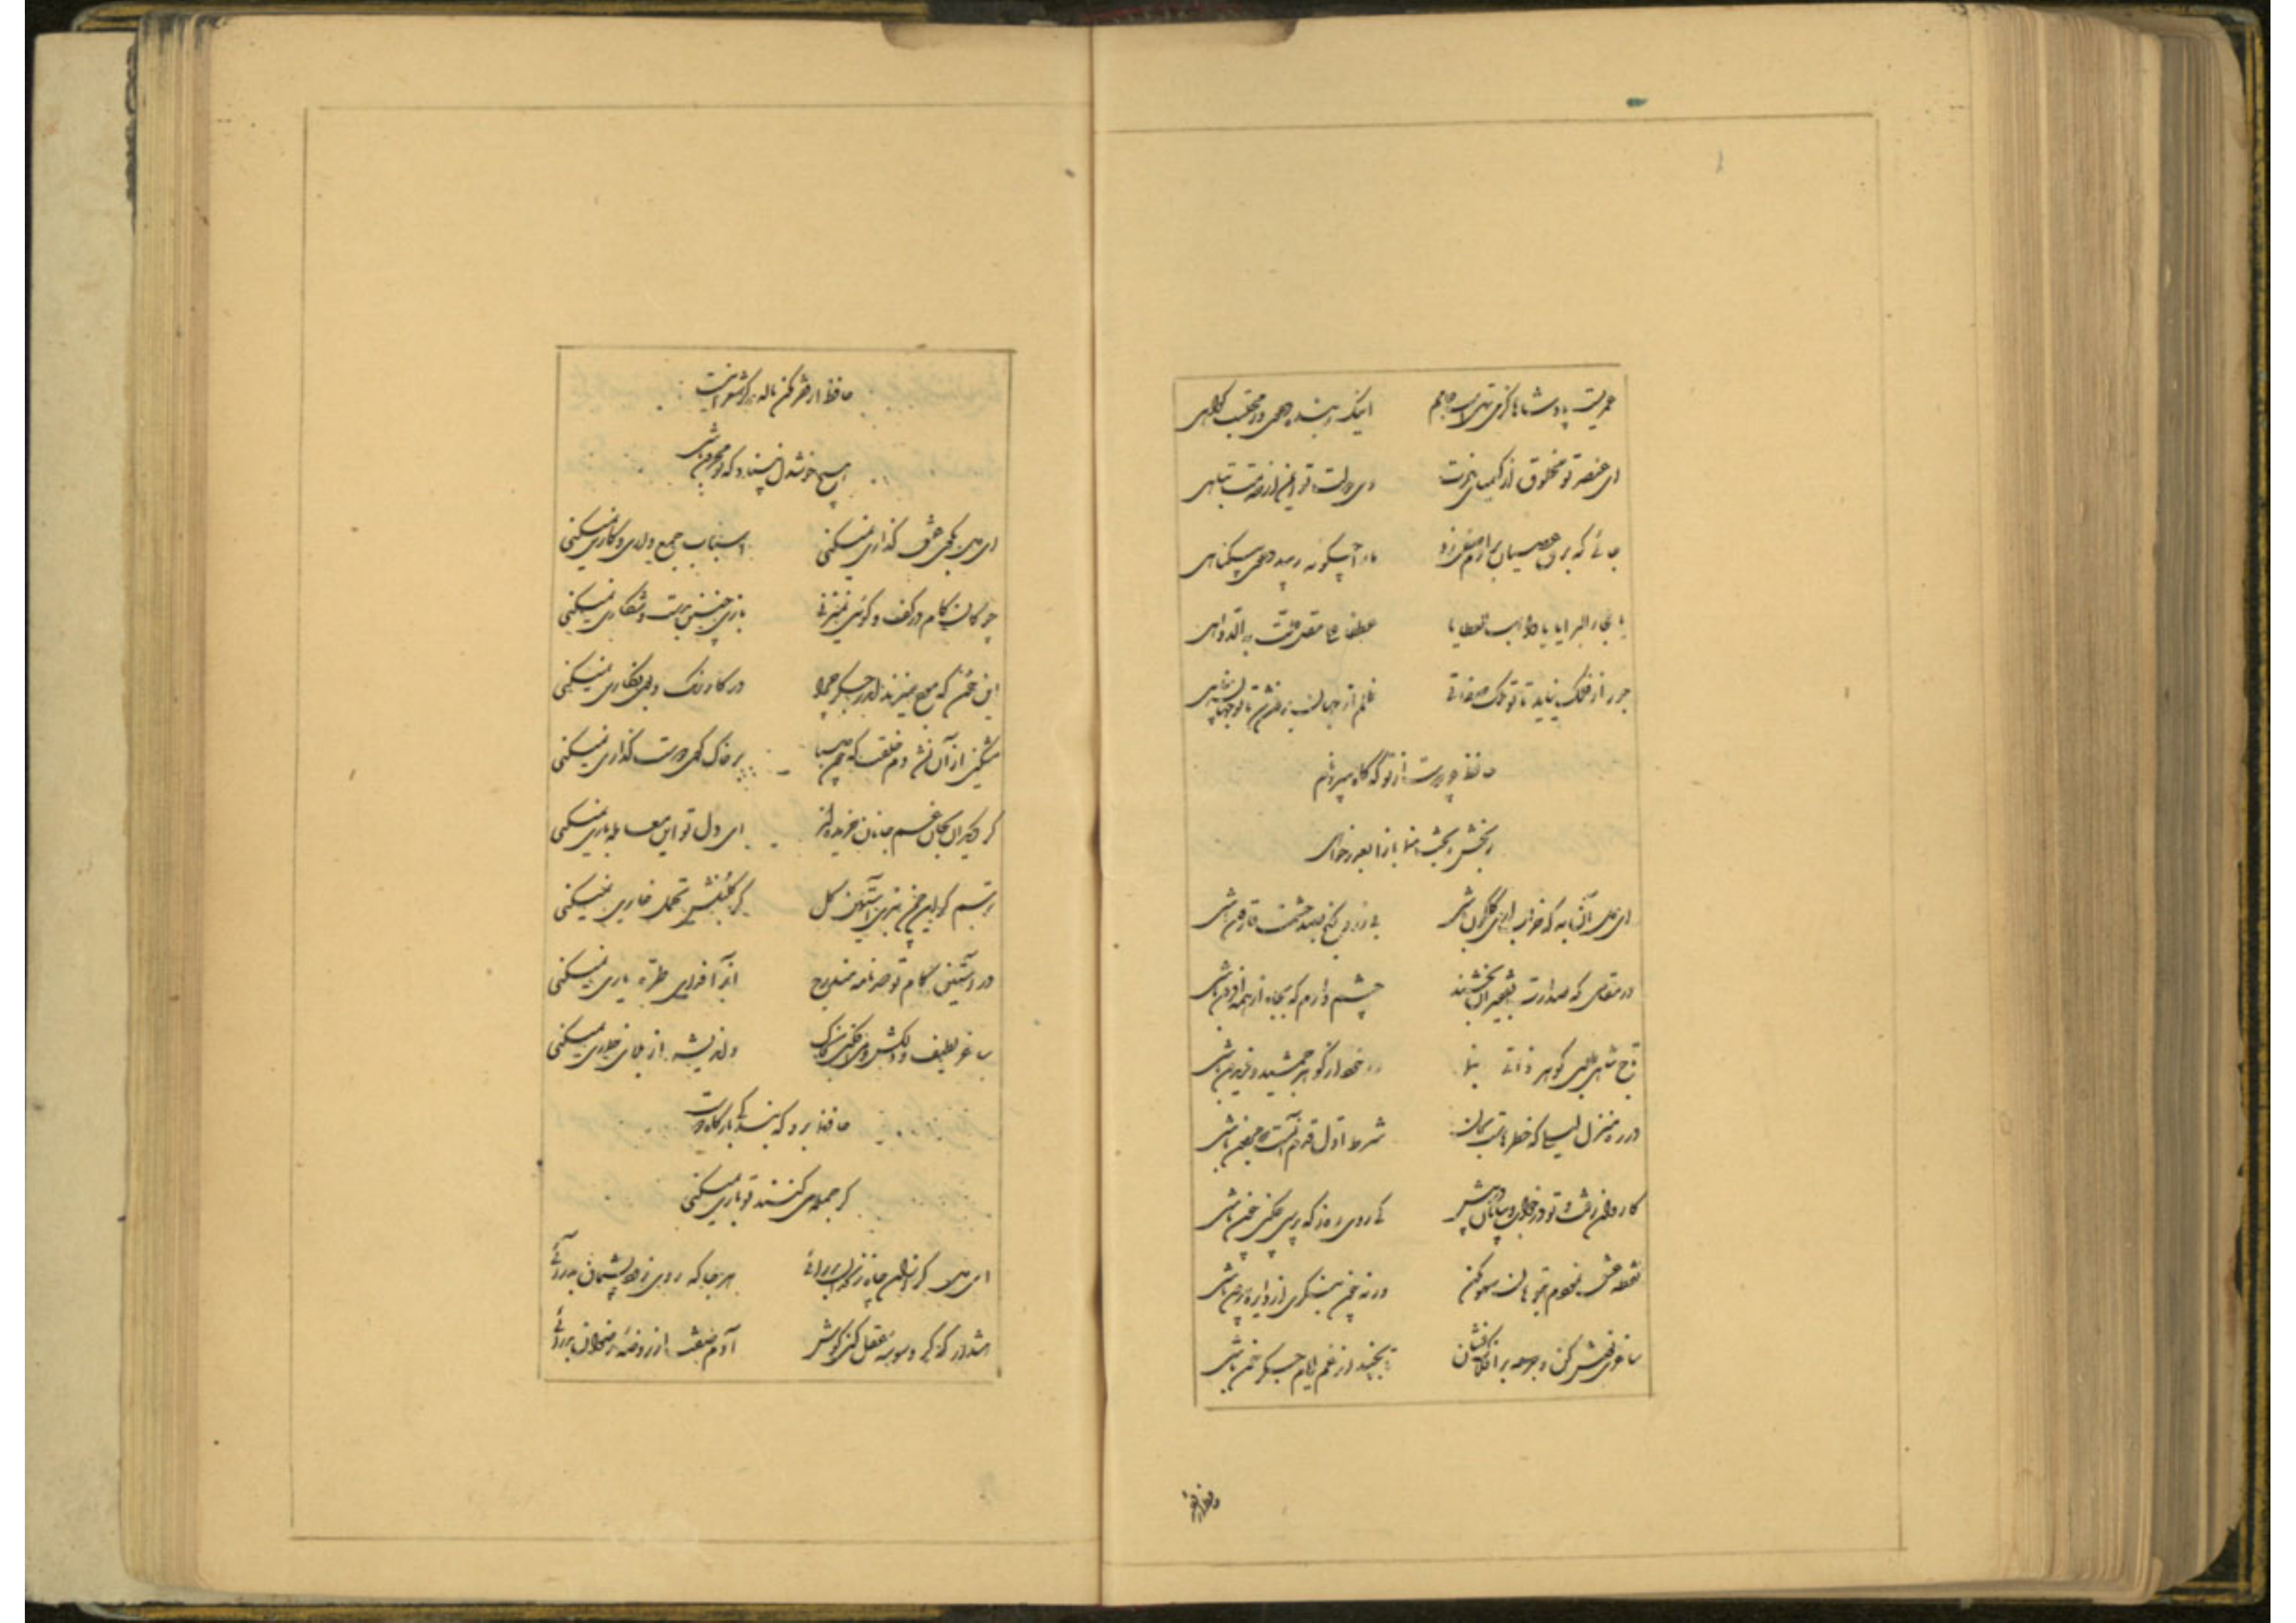 عمریست پادشاها کز می تهیست جامم اینک ز بنده دعوی وز محتسب گواهی
ای عنصر تو مخلوق از کیمیای عزت وی دولت تو ایمن از وصمت تباهی
جائی که برق عصیان بر آدم صفی زد ما را چگونه زیبد دعوی بیگناهی
یا ملجاء البرایا یا واهب العطایا عطفا علی مقل حلت به الدواهی
جور از فلک نیاید تا تو ملک صفاتی ظلم از جهان برون شد تا تو جهان پناهی
حافظ چو دوست از تو گه گاه میبرد نام
رنجش ز بخت منما باز آ بعذر خواهی
ای دل آن به که خراب از می گلگون باشی بی زر و گنج بصد حشمت قارون باشی
در مقامی که صدارت بفقیران بخشند چشم دارم که بجاه از همه افزون باشی
تاج شاهی طلبی گوهر ذاتی بنما ور خود از گوهر جمشید و فریدون باشی
در ره منزل لیلی که خطرهاست بجان شرط اول قدم آنست که مجنون باشی
کاروان رفت و تو در خواب و بیابان در پیش کی روی ره ز که پرسی چکنی چون باشی
نقطه عشق نمودم بتو هان سهو مکن ورنه چون بنگری از دایره بیرون باشی
ساغری نوش کن و جرعه بر افلاک فشان تا بچند از غم ایام جگر خون باشی
حافظ از فقر مکن ناله که گر شعر اینست
هیچ خوشدل نپسندد که تو محزون باشی
ای دل بکوی عشق گذاری نمیکنی اسباب جمع داری و کاری نمیکنی
چوگان کام در کف و گوئی نمیزنی بازی چنین بدست و شکاری نمیکنی
این خون که موج میزند اندر جگر چرا در کار رنگ و بوی نگاری نمیکنی
مشکین از آن نشد دم خلقت که چون صبا بر خاک کوی دوست گذاری نمیکنی
گر دیگران بجان غم جانان خریده‌اند ای دل تو این معامله باری نمیکنی
ترسم کزین چمن نبری آستین گل کز گلشنش تحمل خاری نمیکنی
در آستین کام تو صد نافه مندرج آنرا فدای طره یاری نمیکنی
ساغر لطیف و دلکش و می افکنی بخاک و اندیشه از بلای خماری نمیکنی
حافظ برو که بندگی بارگاه دوست
گر جمله میکنند تو باری نمیکنی
ای دل گر از آن چاه زنخدان بدر آئی هر جا که روی زود پشیمان بدر آئی
هشدار که گر وسوسه عقل کنی گوش آدم صفت از روضه رضوان بدر آئی